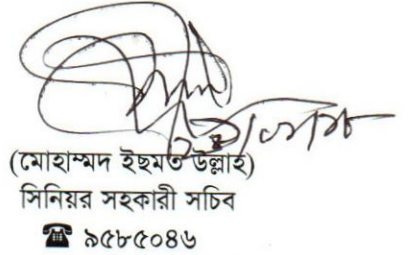 (মোহাম্মদ ইছমত উল্লাহ)
সিনিয়র সহকারী সচিব
☎ ৯৫৮৫০৪৬